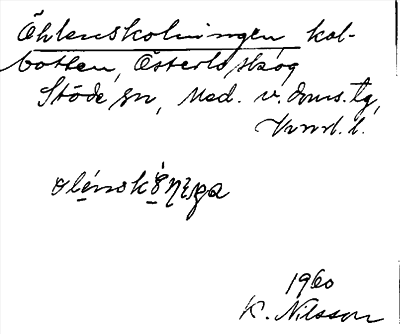 Öhlenskolningen kol-
botten, Österlo skog
Stöde sn, Med. v. doms. tg,
Vnrl. l.
1960
K. Nilsson